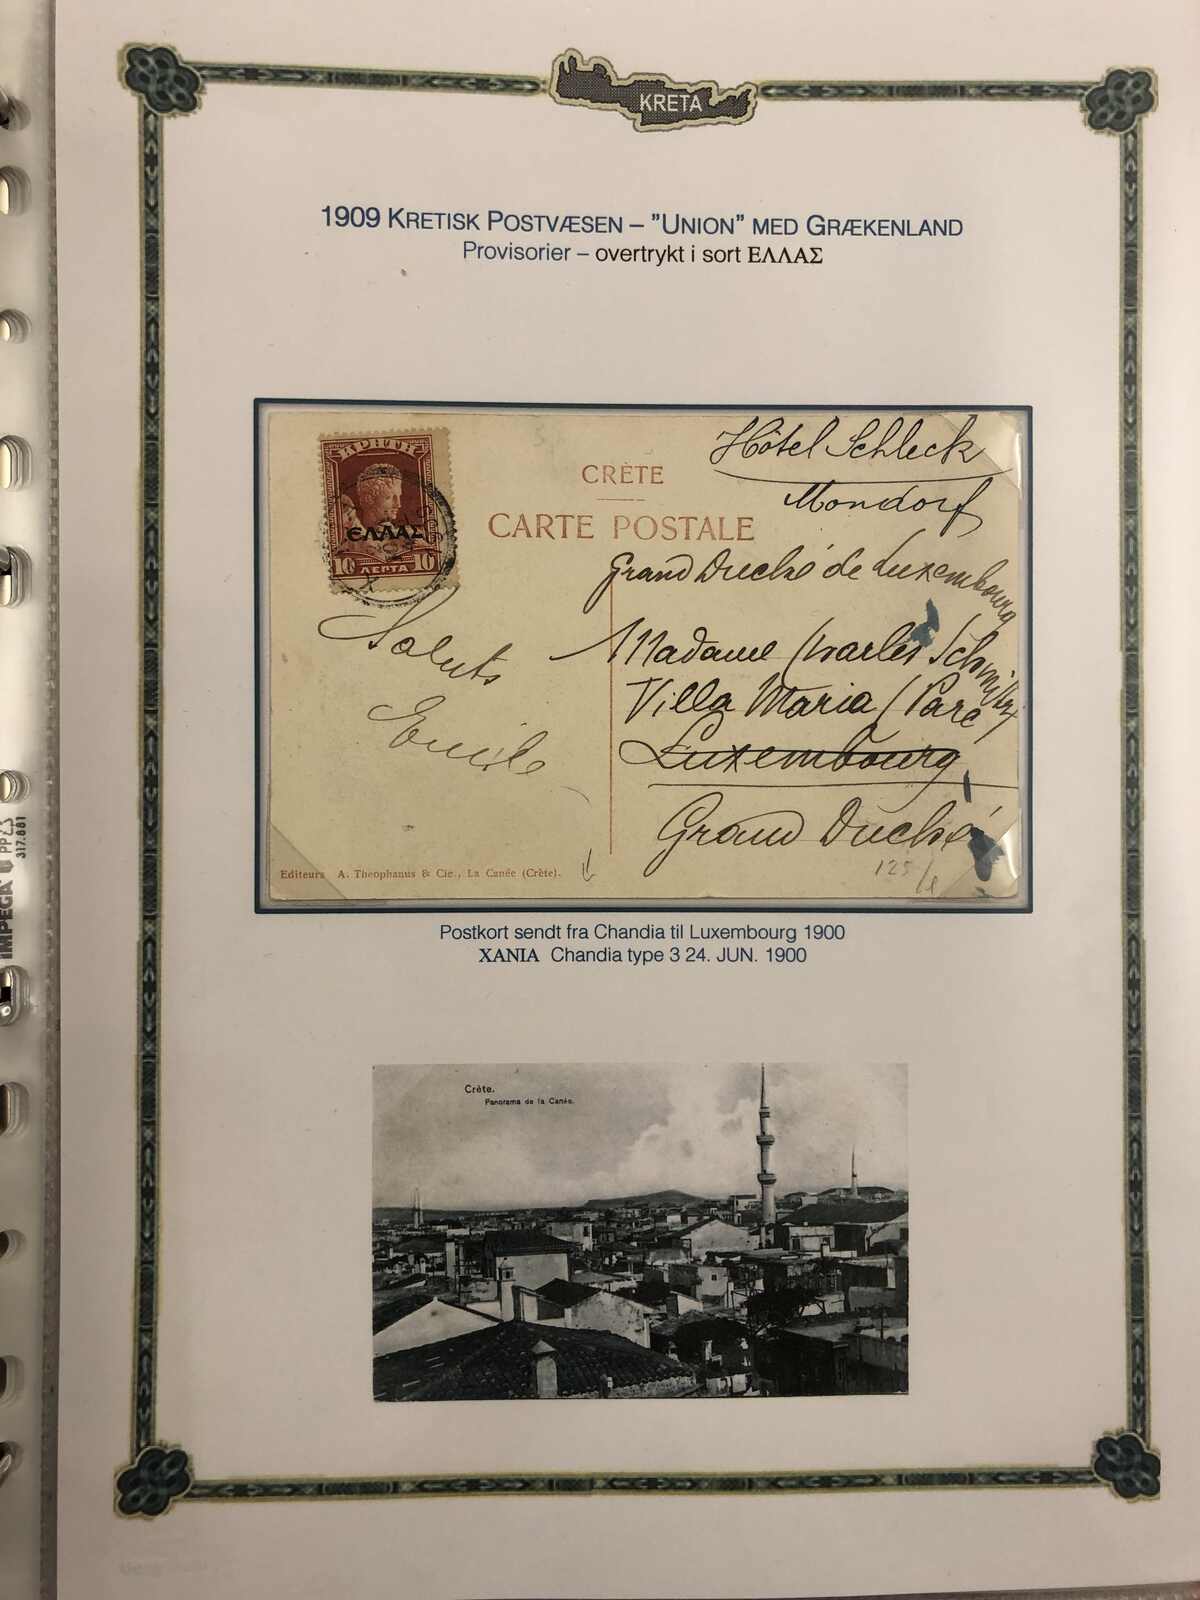 KRETA
1909 KRETISK POSTVÆSEN – ”UNION” MED GRÆKENLAND
Provisorier – overtrykt i sort ΕΛΛΑΣ
ΕΛΛΑΣ
10 ΛΕΠΤΑ 10
CRÈTE
CARTE POSTALE
Hôtel Schleck
Mondorf
Grand Duché de Luxembourg
Madame Charles
Villa Maria (Parc)
Luxembourg
Grand Duché
125/1
Saluts
Emile
Editeurs A. Theophanus & Cie., La Canée (Crète).
Postkort sendt fra Chandia til Luxembourg 1900
ΧΑΝΙΑ Chandia type 3 24. JUN. 1900
Crète.
Panorama de la Canée.
IMPEGA PP
317.881